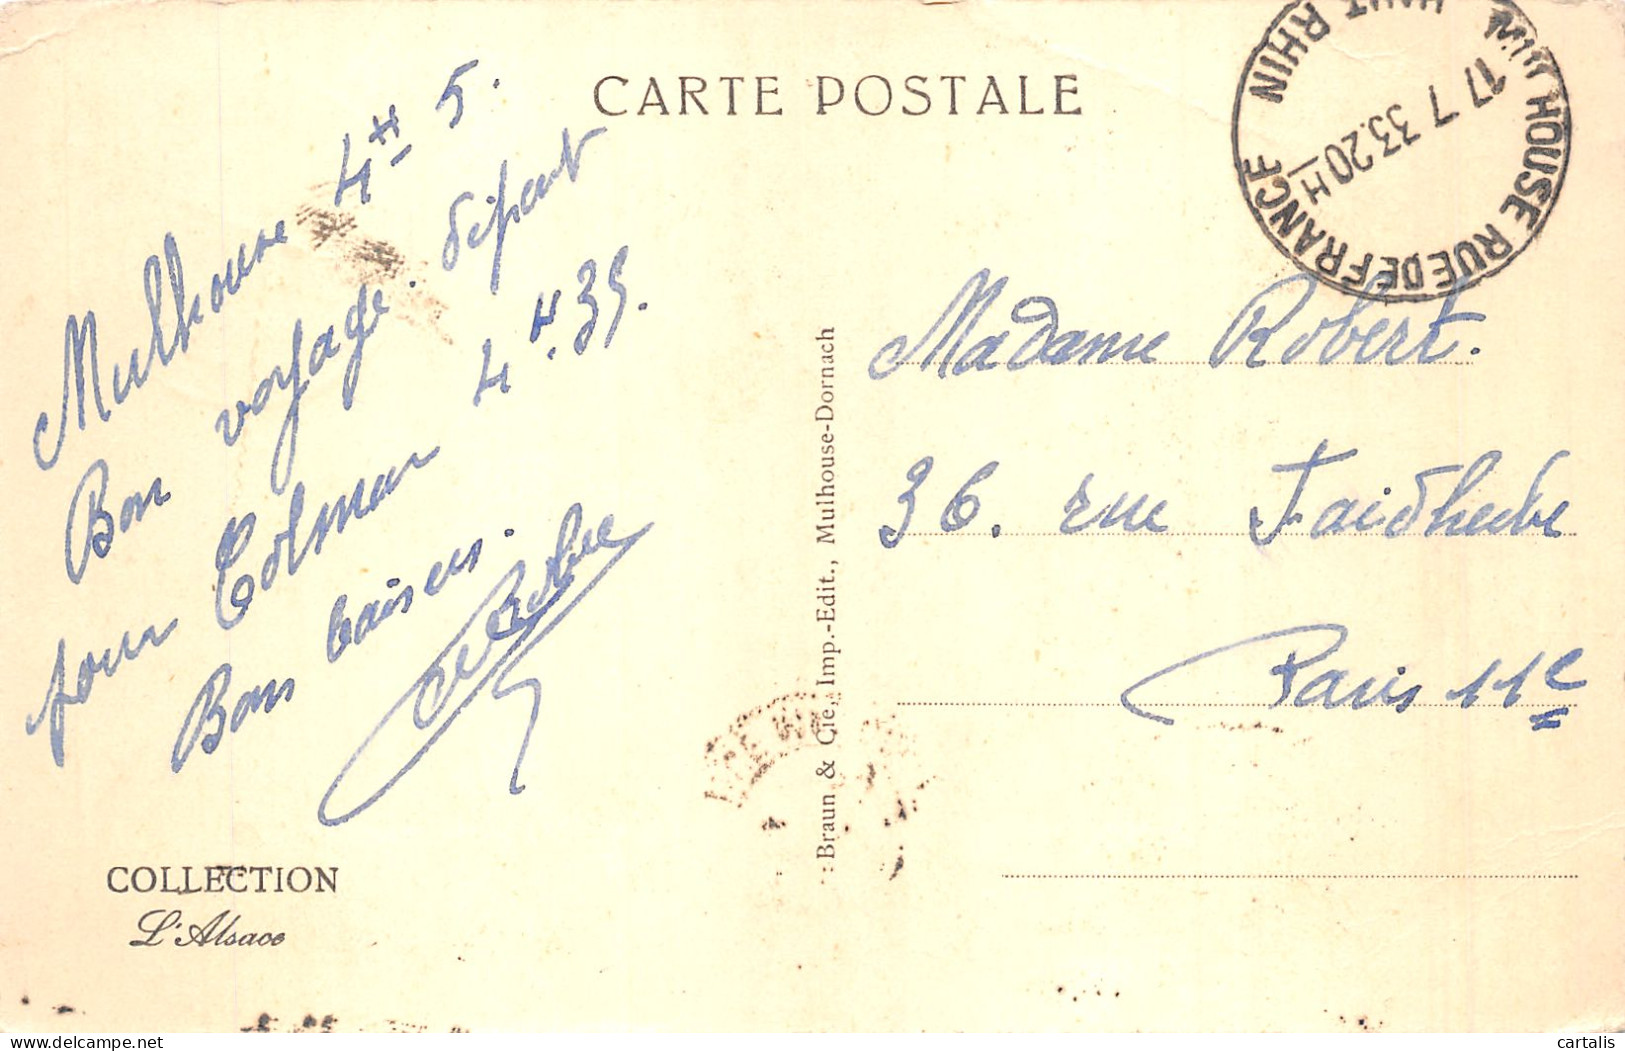 CARTE POSTALE
Mulhouse 4H 5.
Bon voyage. départ
pour Colmar 4H.35.
Bons baisers.
COLLECTION
L'Alsace
Braun & Cie, Imp.-Edit., Mulhouse-Dornach
MULHOUSE RUE DE FRANCE
HAUT RHIN
17 7 33.20H
Madame Robert.
36. rue Faidherbe
Paris 11e
cartalis
delcampe.net